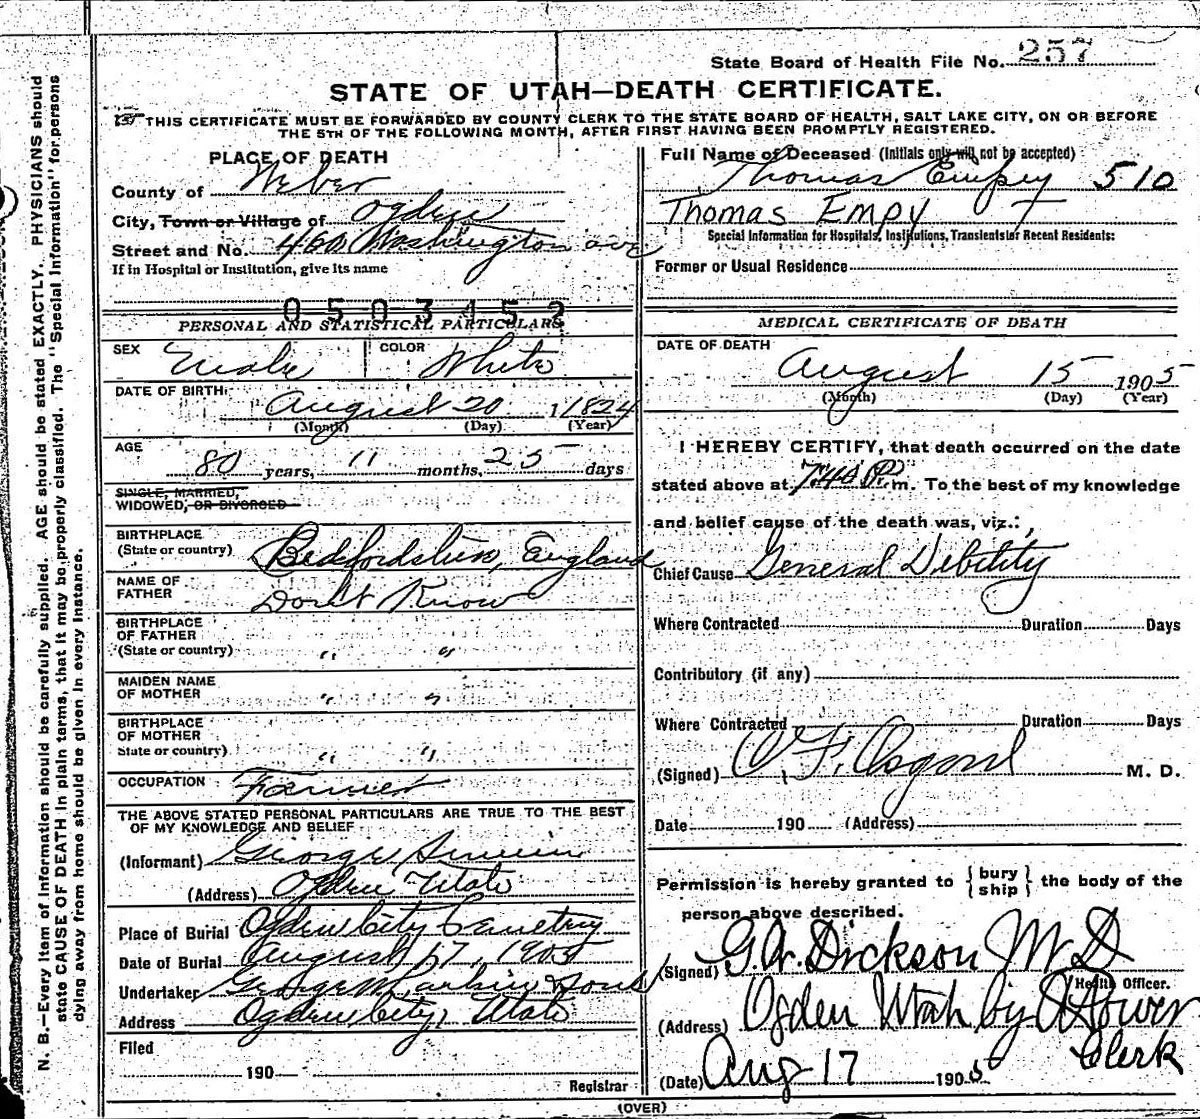 State Board of Health File No. 257
STATE OF UTAH—DEATH CERTIFICATE.
THIS CERTIFICATE MUST BE FORWARDED BY COUNTY CLERK TO THE STATE BOARD OF HEALTH, SALT LAKE CITY, ON OR BEFORE
THE 5TH OF THE FOLLOWING MONTH, AFTER FIRST HAVING BEEN PROMPTLY REGISTERED.
PLACE OF DEATH
County of Weber
City, Town or Village of Ogden
Street and No. 460 Washington ave
If in Hospital or Institution, give its name
0503452
PERSONAL AND STATISTICAL PARTICULARS
SEX Male COLOR White
DATE OF BIRTH: August 20 1824
(Month) (Day) (Year)
AGE 80 years, 11 months, 25 days
SINGLE, MARRIED,
WIDOWED, OR DIVORCED
BIRTHPLACE
(State or country) Bedfordshire, England
NAME OF
FATHER Don't Know
BIRTHPLACE
OF FATHER
(State or country) " "
MAIDEN NAME
OF MOTHER " "
BIRTHPLACE
OF MOTHER
State or country) " "
OCCUPATION Farmer
THE ABOVE STATED PERSONAL PARTICULARS ARE TRUE TO THE BEST
OF MY KNOWLEDGE AND BELIEF
(Informant) George
(Address) Ogden Utah
Place of Burial Ogden City Cemetery
Date of Burial August 17, 1905
Undertaker George Larkin & Sons
Address Ogden City, Utah
Filed
190
Registrar
Full Name of Deceased (Initials only will not be accepted)
Thomas Empey 510
Thomas Empy
Special Information for Hospitals, Institutions, Transients or Recent Residents:
Former or Usual Residence
MEDICAL CERTIFICATE OF DEATH
DATE OF DEATH
August 15 1905
(Month) (Day) (Year)
I HEREBY CERTIFY, that death occurred on the date
stated above at 7:40 P.m. To the best of my knowledge
and belief cause of the death was, viz.:
Chief Cause General Debility
Where Contracted Duration Days
Contributory (if any)
Where Contracted Duration Days
(Signed) Osgood M. D.
Date 190 (Address)
Permission is hereby granted to { bury ship } the body of the
person above described.
(Signed) G.W. Dickson M D
Health Officer.
(Address) Ogden Utah by
Clerk
(Date) Aug 17 1905
(OVER)
N. B.—Every item of information should be carefully supplied. AGE should be stated EXACTLY. PHYSICIANS should
state CAUSE OF DEATH in plain terms, that it may be properly classified. The "Special Information" for persons
dying away from home should be given in every instance.